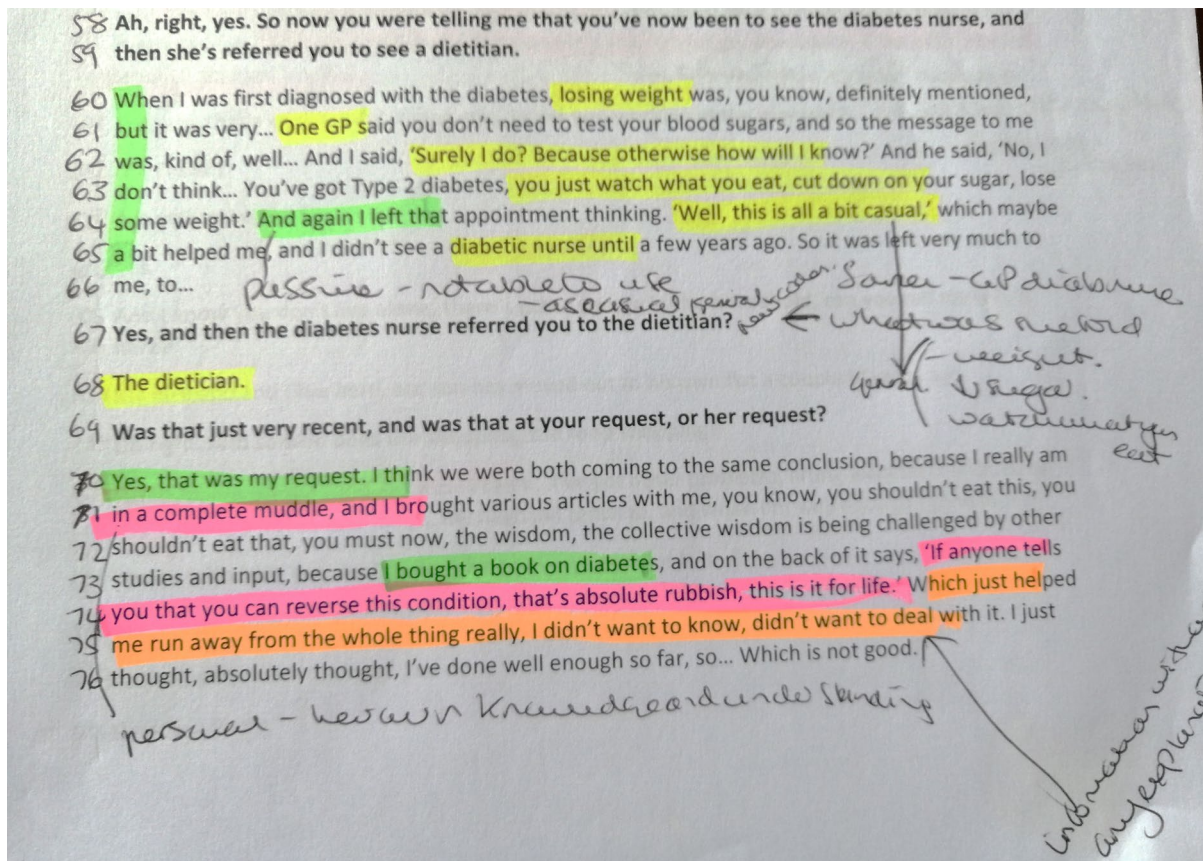 58 Ah, right, yes. So now you were telling me that you've now been to see the diabetes nurse, and
59 then she's referred you to see a dietitian.
60 When I was first diagnosed with the diabetes, losing weight was, you know, definitely mentioned,
61 but it was very... One GP said you don't need to test your blood sugars, and so the message to me
62 was, kind of, well... And I said, 'Surely I do? Because otherwise how will I know?' And he said, 'No, I
63 don't think... You've got Type 2 diabetes, you just watch what you eat, cut down on your sugar, lose
64 some weight.' And again I left that appointment thinking. 'Well, this is all a bit casual,' which maybe
65 a bit helped me, and I didn't see a diabetic nurse until a few years ago. So it was left very much to
66 me, to...
passive - not able to use
what was
67 Yes, and then the diabetes nurse referred you to the dietitian?
- weight.
68 The dietician.
↓ sugar.
69 Was that just very recent, and was that at your request, or her request?
eat
70 Yes, that was my request. I think we were both coming to the same conclusion, because I really am
71 in a complete muddle, and I brought various articles with me, you know, you shouldn't eat this, you
72 shouldn't eat that, you must now, the wisdom, the collective wisdom is being challenged by other
73 studies and input, because I bought a book on diabetes, and on the back of it says, 'If anyone tells
74 you that you can reverse this condition, that's absolute rubbish, this is it for life.' Which just helped
75 me run away from the whole thing really, I didn't want to know, didn't want to deal with it. I just
76 thought, absolutely thought, I've done well enough so far, so... Which is not good.
personal - her own knowledge and understanding
information with
any